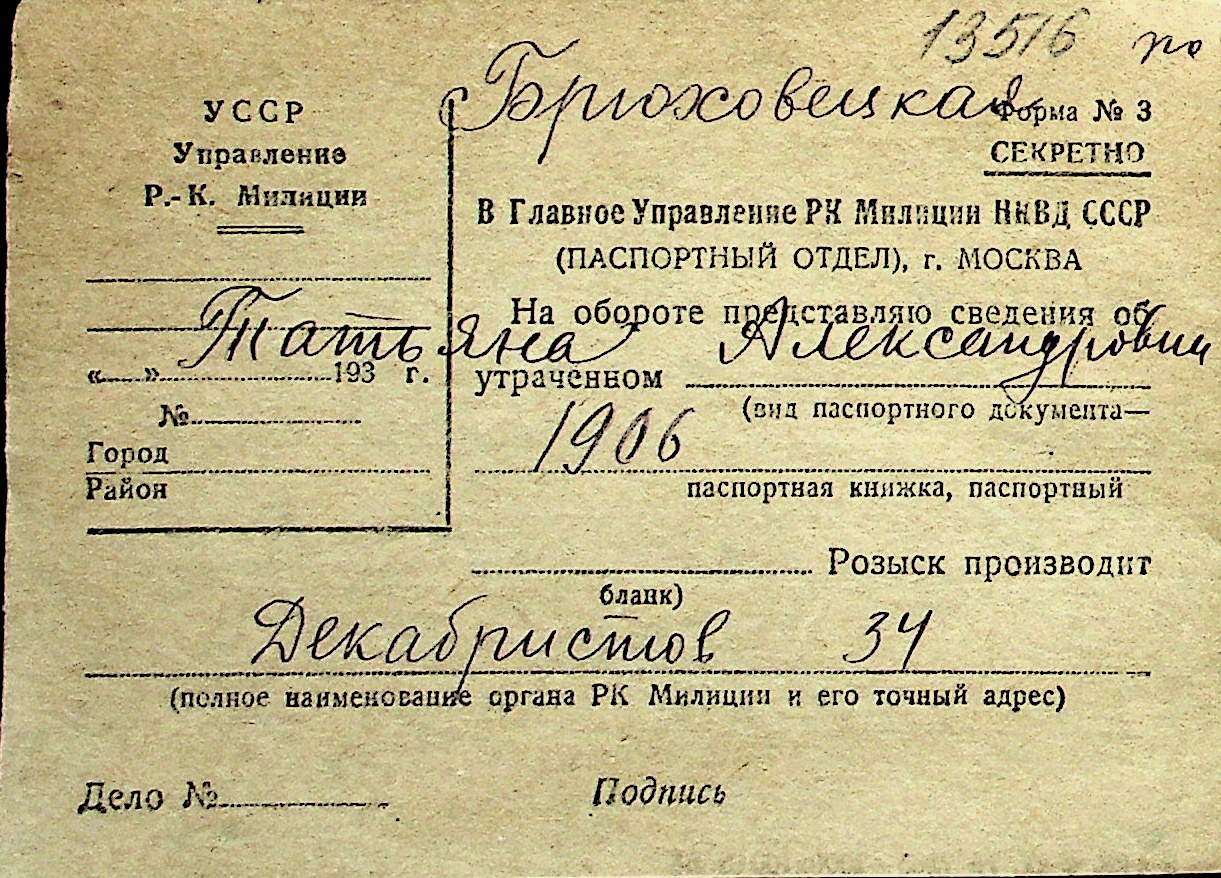 13516 ро
Брюховецкая
УССР
Управление
Р.-К. Милиции
Форма № 3
СЕКРЕТНО
В Главное Управление РК Милиции НКВД СССР
(ПАСПОРТНЫЙ ОТДЕЛ), г. МОСКВА
На обороте представляю сведения об
Татьяна Александровн
«....»....................193 г.
утраченном
(вид паспортного документа—
№
1906
Город
Район
паспортная книжка, паспортный
бланк)
Розыск производит
Декабристов 34
(полное наименование органа РК Милиции и его точный адрес)
Дело № Подпись